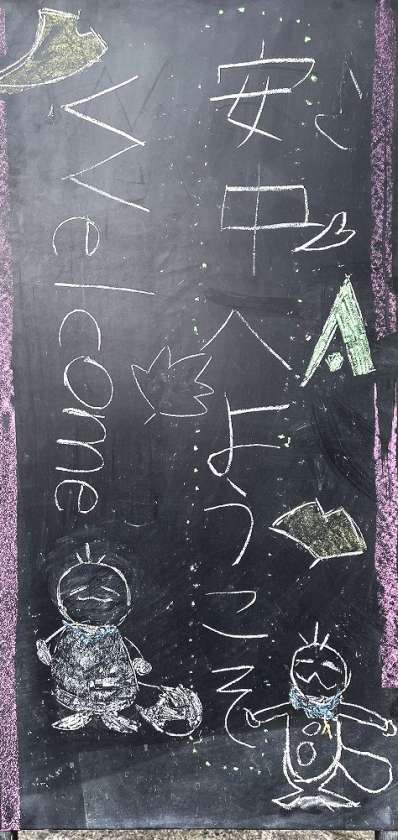 安中へようこそ
Welcome